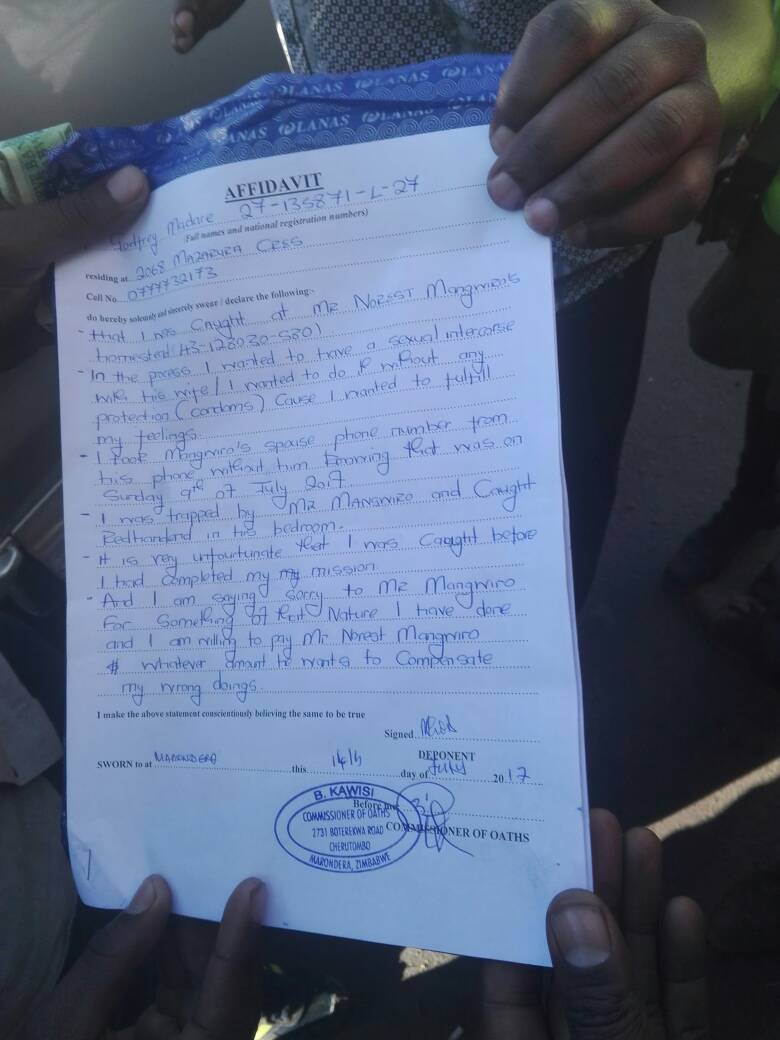 OLANAS OLANAS OLANAS
ANAS OLANAS OLANAS
AFFIDAVIT
Godfrey Madare 27-135871-L-27
(Full names and national registration numbers)
residing at 2068 MAZARURA CRSS
Cell No 0777732173
do hereby solemnly and sincerely swear / declare the following:-
- that I was Caught at Mr NOREST Mangwiro's
homestead (43-128030-S80)
- In the process I wanted to have a sexual intercorse
with his wife / I wanted to do it without any
protection (condoms) Cause I wanted to fulfill
my feelings.
- I took Mangwiro's spouse phone number from
his phone without him knowing that was on
Sunday 9th of July 2017.
- I was trapped by MR MANGWIRO and Caught
Redhanded in his bedroom.
- It is very unfourtunate that I was Caught before
I had Completed my my mission
- And I am saying sorry to Mr Mangwiro
For Something of that Nature I have done
and I am willing to pay Mr Norest Mangwiro
$ whatever amant he wants to Compensate
my wrong doings.
I make the above statement conscientiously believing the same to be true
Signed
DEPONENT
SWORN to at MARONDERA this 14th day of July 2017
Before me
COMMISSIONER OF OATHS
B. KAWISI
COMMISSIONER OF OATHS
2731 BOTEREKWA ROAD
CHERUTOMBO
MARONDERA, ZIMBABWE